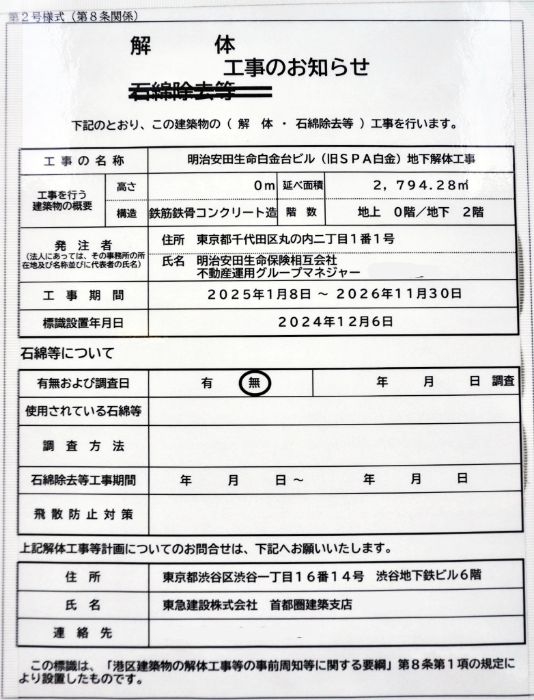 第2号様式（第8条関係）
解　　体
工事のお知らせ
石綿除去等
下記のとおり、この建築物の（ 解　体 ・ 石綿除去等 ）工事を行います。
工事の名称　明治安田生命白金台ビル（旧ＳＰＡ白金）地下解体工事
工事を行う建築物の概要　高さ　０ｍ　延べ面積　２，７９４.２８㎡
構造　鉄筋鉄骨コンクリート造　階 数　地上　０階／地下　２階
発 注 者
（法人にあっては、その事務所の所
在地及び名称並びに代表者の氏名）
住所　東京都千代田区丸の内二丁目１番１号
氏名　明治安田生命保険相互会社
不動産運用グループマネジャー
工 事 期 間　２０２５年１月８日 ～ ２０２６年１１月３０日
標識設置年月日　２０２４年１２月６日
石綿等について
有無および調査日　有　無　年　月　日 調査
使用されている石綿等
調 査 方 法
石綿除去等工事期間　年　月　日 ～　年　月　日
飛 散 防 止 対 策
上記解体工事等計画についてのお問合せは、下記へお願いいたします。
住 所　東京都渋谷区渋谷一丁目１６番１４号　渋谷地下鉄ビル６階
氏 名　東急建設株式会社　首都圏建築支店
連 絡 先
この標識は、「港区建築物の解体工事等の事前周知等に関する要綱」第８条第１項の規定に
より設置したものです。